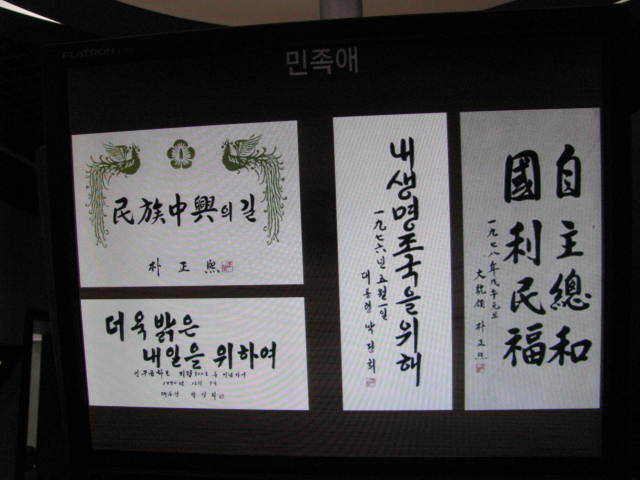 FLATRON
민족애
民族中興의 길
朴正熙
더욱 밝은
내일을 위하여
내 생명 조국을 위해
一九七六년 五월 一일
대통령 박정희
自主總和
國利民福
一九七八年 戊午元旦
大統領 朴正熙